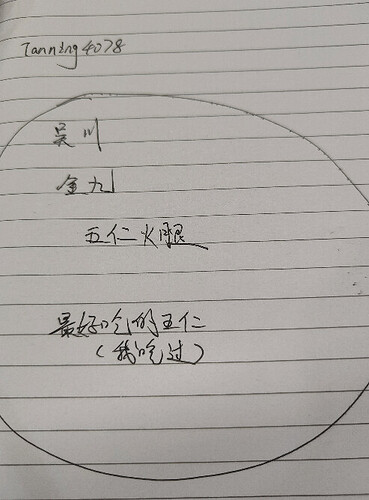 Tanning4078
吴川
金九
五仁火腿
最好吃的五仁
(我吃过)